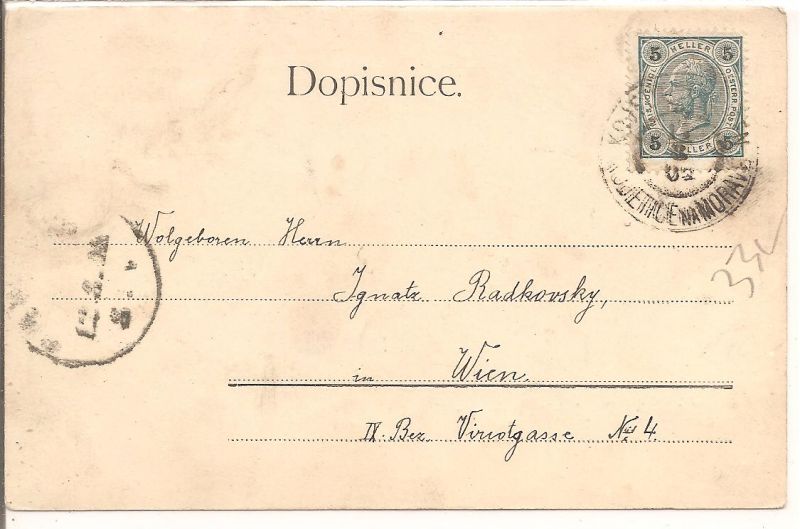 Dopisnice.
5 HELLER 5
KAIS. KOENIGL.
OESTERR. POST
5 HELLER 5
NA MORAVĚ
Wolgeboren Herrn
Ignatz Radkovsky,
in Wien
IX. Bez Viriotgasse No 4.